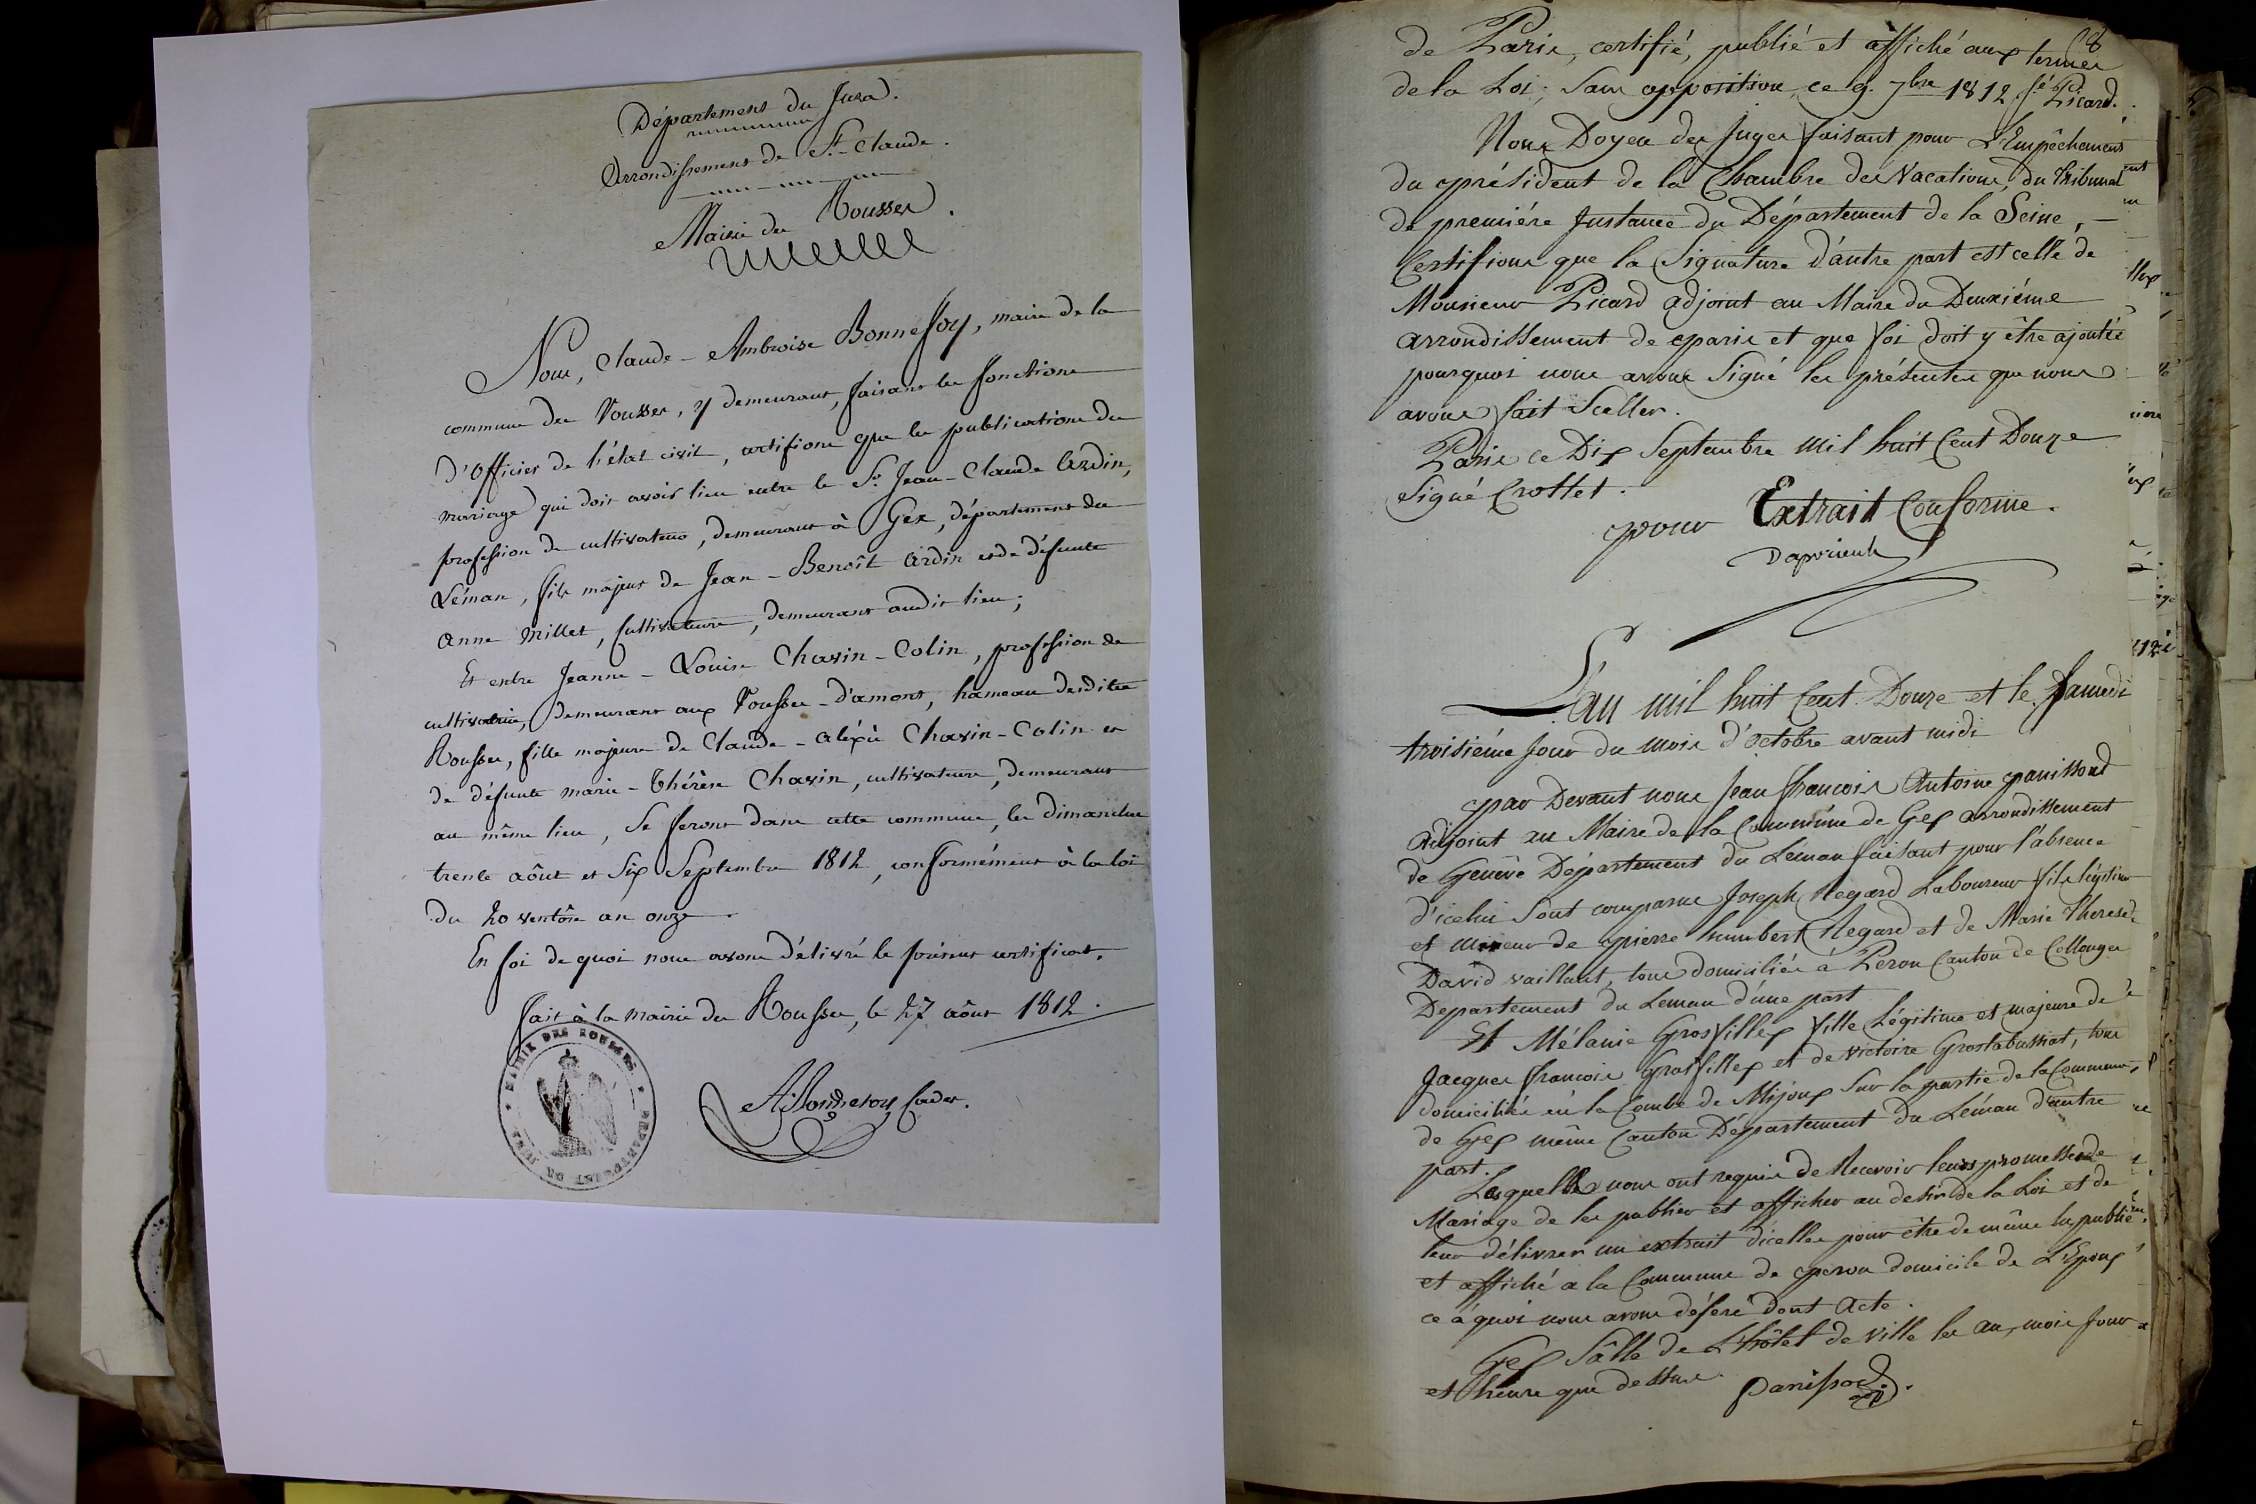 Département du Jura.
Arrondissement de St. Claude.
Mairie des Rousses.
Nous, Claude-Ambroise Bonnefoy, maire de la
commune des Rousses, y demeurant, faisant les fonctions
d'Officier de l'état civil, certifions que les publications du
mariage qui doit avoir lieu entre le Sr. Jean-Claude Ardin,
profession de cultivateur, demeurant à Gex, département du
Léman, fils majeur de Jean-Benoît Ardin et de défunte
Anne Millet, Cultivateurs, demeurant audit lieu;
Et entre Jeanne-Louise Chavin-Colin, profession de
cultivatrice, demeurant aux Rousses-d'amont, hameau desdites
Rousses, fille majeure de Claude-Aléxis Chavin-Colin et
de défunte marie-thérèse Chavin, cultivateurs, demeurant
au même lieu, Se feront dans cette commune, les dimanches
trente aôut et Six Septembre 1812, conformément à la loi
du 20 ventôse an onze.
En foi de quoi nous avons délivré le présent certificat.
fait à la mairie des Rousses, le 27 aôut 1812.
MAIRIE DES ROUSSES DEPARTEMENT DU JURA
de Paris, certifié, publié et affiché aux termes
de la Loi; Sans opposition, ce 9. 7bre 1812 sé. Picard.
Nous Doyen des Juges faisant pour L'Empêchement
du président de la Chambre des Vacations, du Tribunal
de première Instance du Département de la Seine,
Certifions que la Signature d'autre part est celle de
Monsieur Picard adjoint au Maire du Deuxiéme
arrondissement de paris et que foi doit y être ajoutée
pourquoi nous avons Signé les présentes que nous
avons fait Sceller.
Paris ce Dix Septembre mil huit Cent Douze
Signé Crottet.
pour Extrait Conforme.
L'an mil huit Cent Douze et le Samedi
troisiéme Jour du mois d'octobre avant midi
par Devant nous Jean françois Antoine panissod
adjoint au Maire de la Commune de Gex arrondissement
de Genêve Département du Léman faisant pour l'absence
d'icelui Sont comparus Joseph Regard Laboureur fils légitime
et mineur de pierre humbert Regard et de Marie Therese
David vaillant, tous domiciliés à Peron Canton de Collonges
Departement du Leman d'une part
Et Mélanie Grosfillex fille Légitime et majeure de
Jacques françois Grosfillex et de victoire Grostabussiat, tous
domiciliés en la Combe de Mijoux Sur la partie de la Commune
de Gex même Canton Département du Léman d'autre
part.
Lesquels nous ont requis de Recevoir leurs promesses de
Mariage de les publier et afficher au desir de la Loi et de
leur délivrer un extrait d'icelles pour être de même lu, publié
et affiché a la Commune de peron domicile de L'Epoux
ce à quoi nous avons déferé dont Acte.
Gex Sâlle de L'hôtel de ville les an, mois Jour
et heure que dessus. Panissod